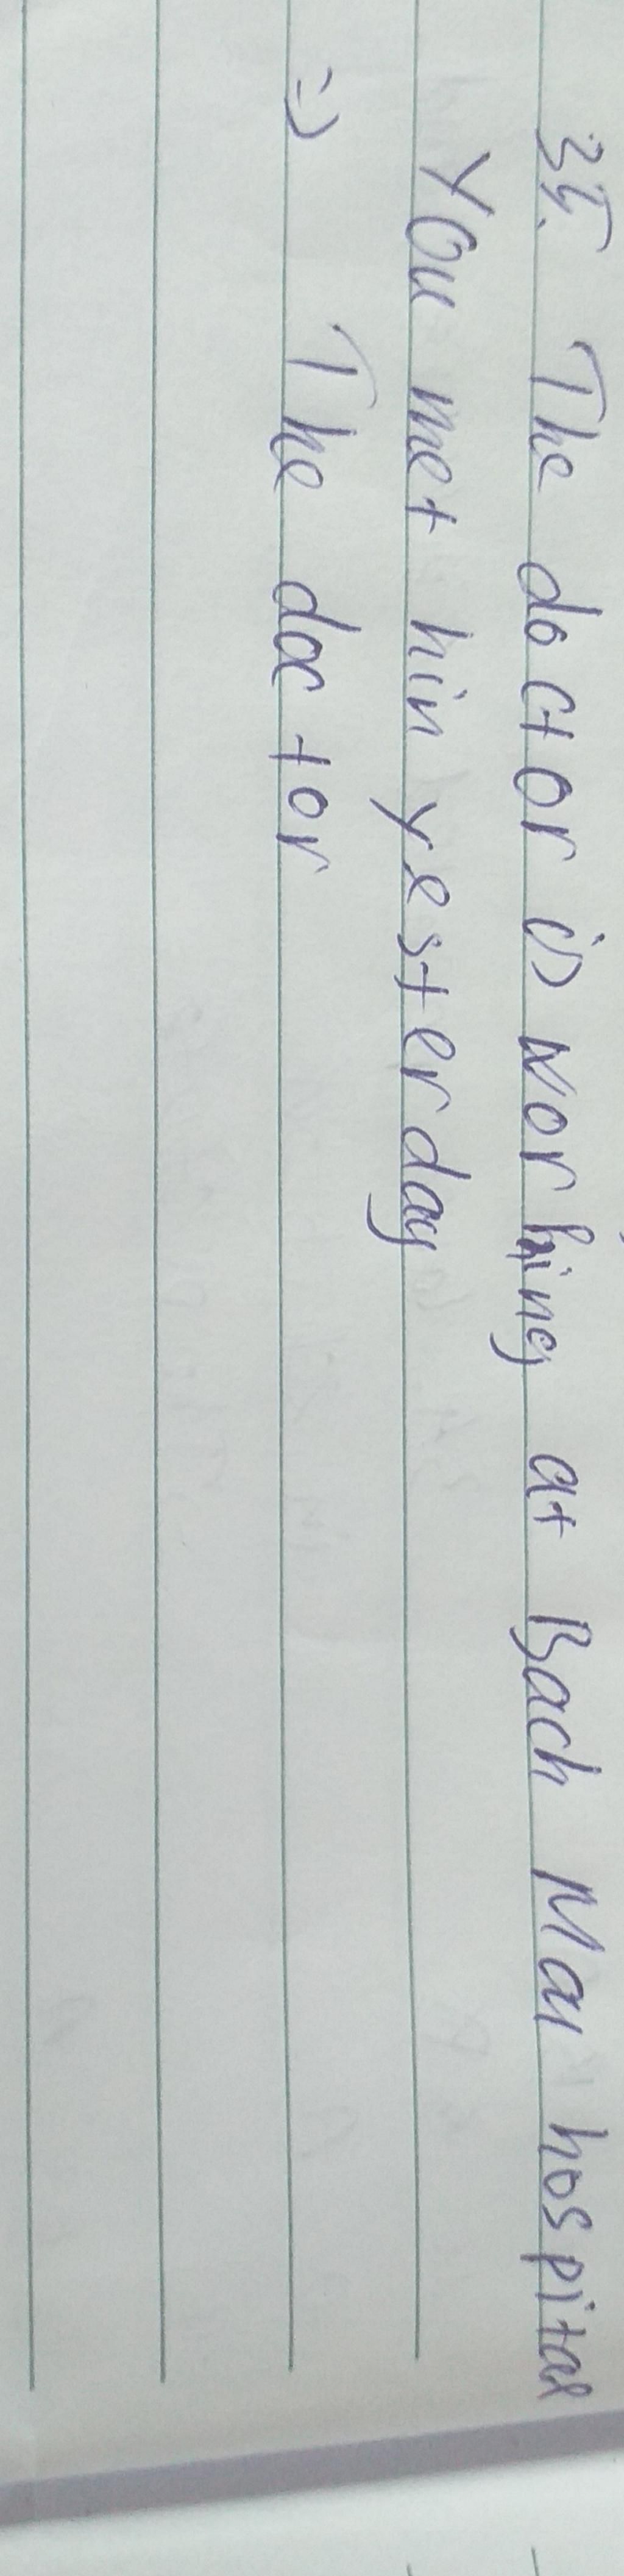 35. The doctor is working at Bach Mai hospital
You met hin yesterday
=> The doctor